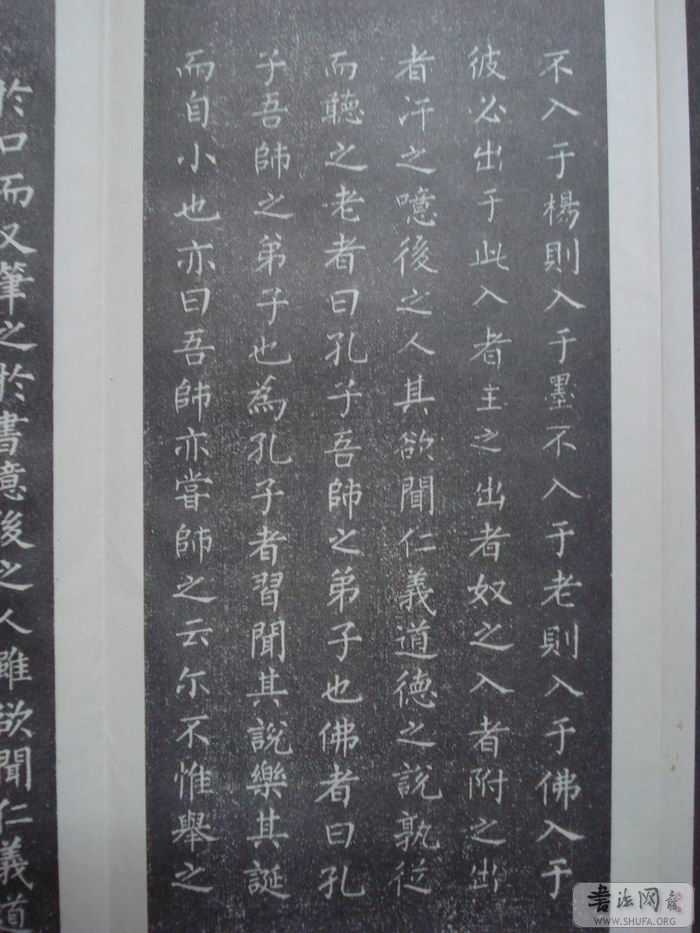 不入于楊則入于墨不入于老則入于佛入于
彼必出于此入者主之出者奴之入者附之出
者汙之噫後之人其欲聞仁義道德之說孰從
而聽之老者曰孔子吾師之弟子也佛者曰孔
子吾師之弟子也為孔子者習聞其說樂其誕
而自小也亦曰吾師亦嘗師之云尒不惟舉之
於口而又筆之於書意後之人雖欲聞仁義道
書法网
WWW.SHUFA.ORG